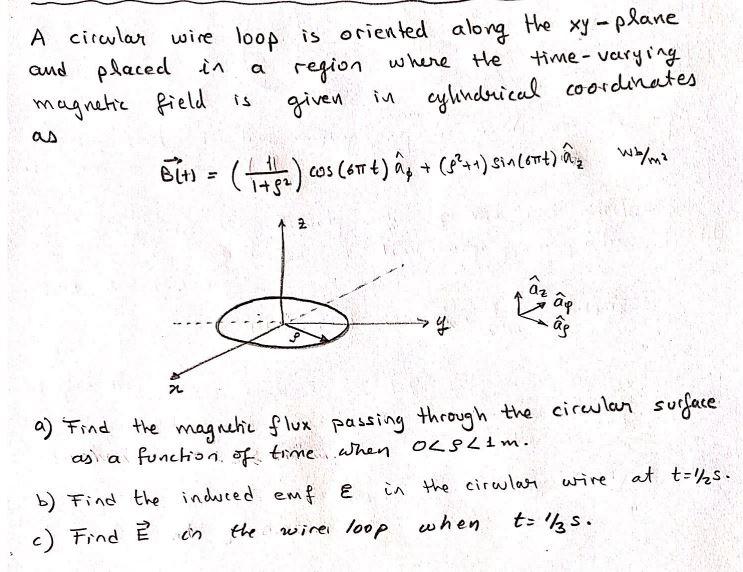 A circular wire loop is oriented along the xy-plane
and placed in a region where the time-varying
magnetic field is given in cylindrical coordinates
as
B⃗(t) = (11/(1+ρ²)) cos(6πt) âφ + (ρ²+1) sin(6πt) âz Wb/m²
z
âz
âφ
y
âρ
ρ
x
a) Find the magnetic flux passing through the circular surface
as a function of time when 0<ρ<1m.
b) Find the induced emf ε in the circular wire at t=1/2s.
c) Find E⃗ in the wire loop when t=1/3s.